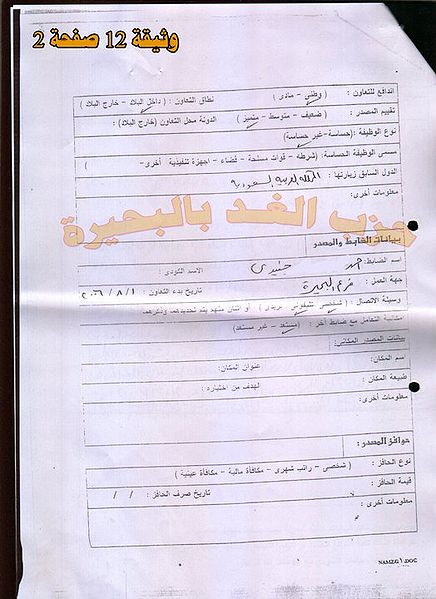 وثيقة 12 صفحة 2
الدافع للتعاون : ( وطنى - مادى )
نطاق التعاون : ( داخل البلاد - خارج البلاد )
تقييم المصدر : ( ضعيف - متوسط - متميز )
الدولة محل التعاون (خارج البلاد) :
نوع الوظيفة : (حساسة-غير حساسة)
مسمى الوظيفة الحساسة: (شرطه - قوات مسلحة - قضاء - اجهزة تنفيذية أخرى- )
الدول السابق زيارتها : المملكة العربية السعودية
معلومات أخرى:
حزب الغد بالبحيرة
بيانات الضابط والمصدر
اسم الضابط: احمد
الاسم الكودى :
جهة العمل: فرع البحيرة
تاريخ بدء التعاون : ٢٠٠٦/٨/١
وسيلة الاتصال : ( شخصي - تليفوني - بريدى ) أو اثنان منهم يتم تحديدهم وذكرهم.
امكانية التعامل مع ضابط آخر : (مستعد - غير مستعد)
بيانات المصدر المكانى:
اسم المكان:
عنوان المكان:
طبيعة المكان :
الهدف من اختياره :
معلومات أخرى:
حوافز المصدر:
نوع الحافز : ( شخصى - راتب شهرى - مكافأة مالية - مكافأة عينية )
قيمة الحافز :
تاريخ صرف الحافز : / /
معلومات أخرى :
NAMZG١.DOC